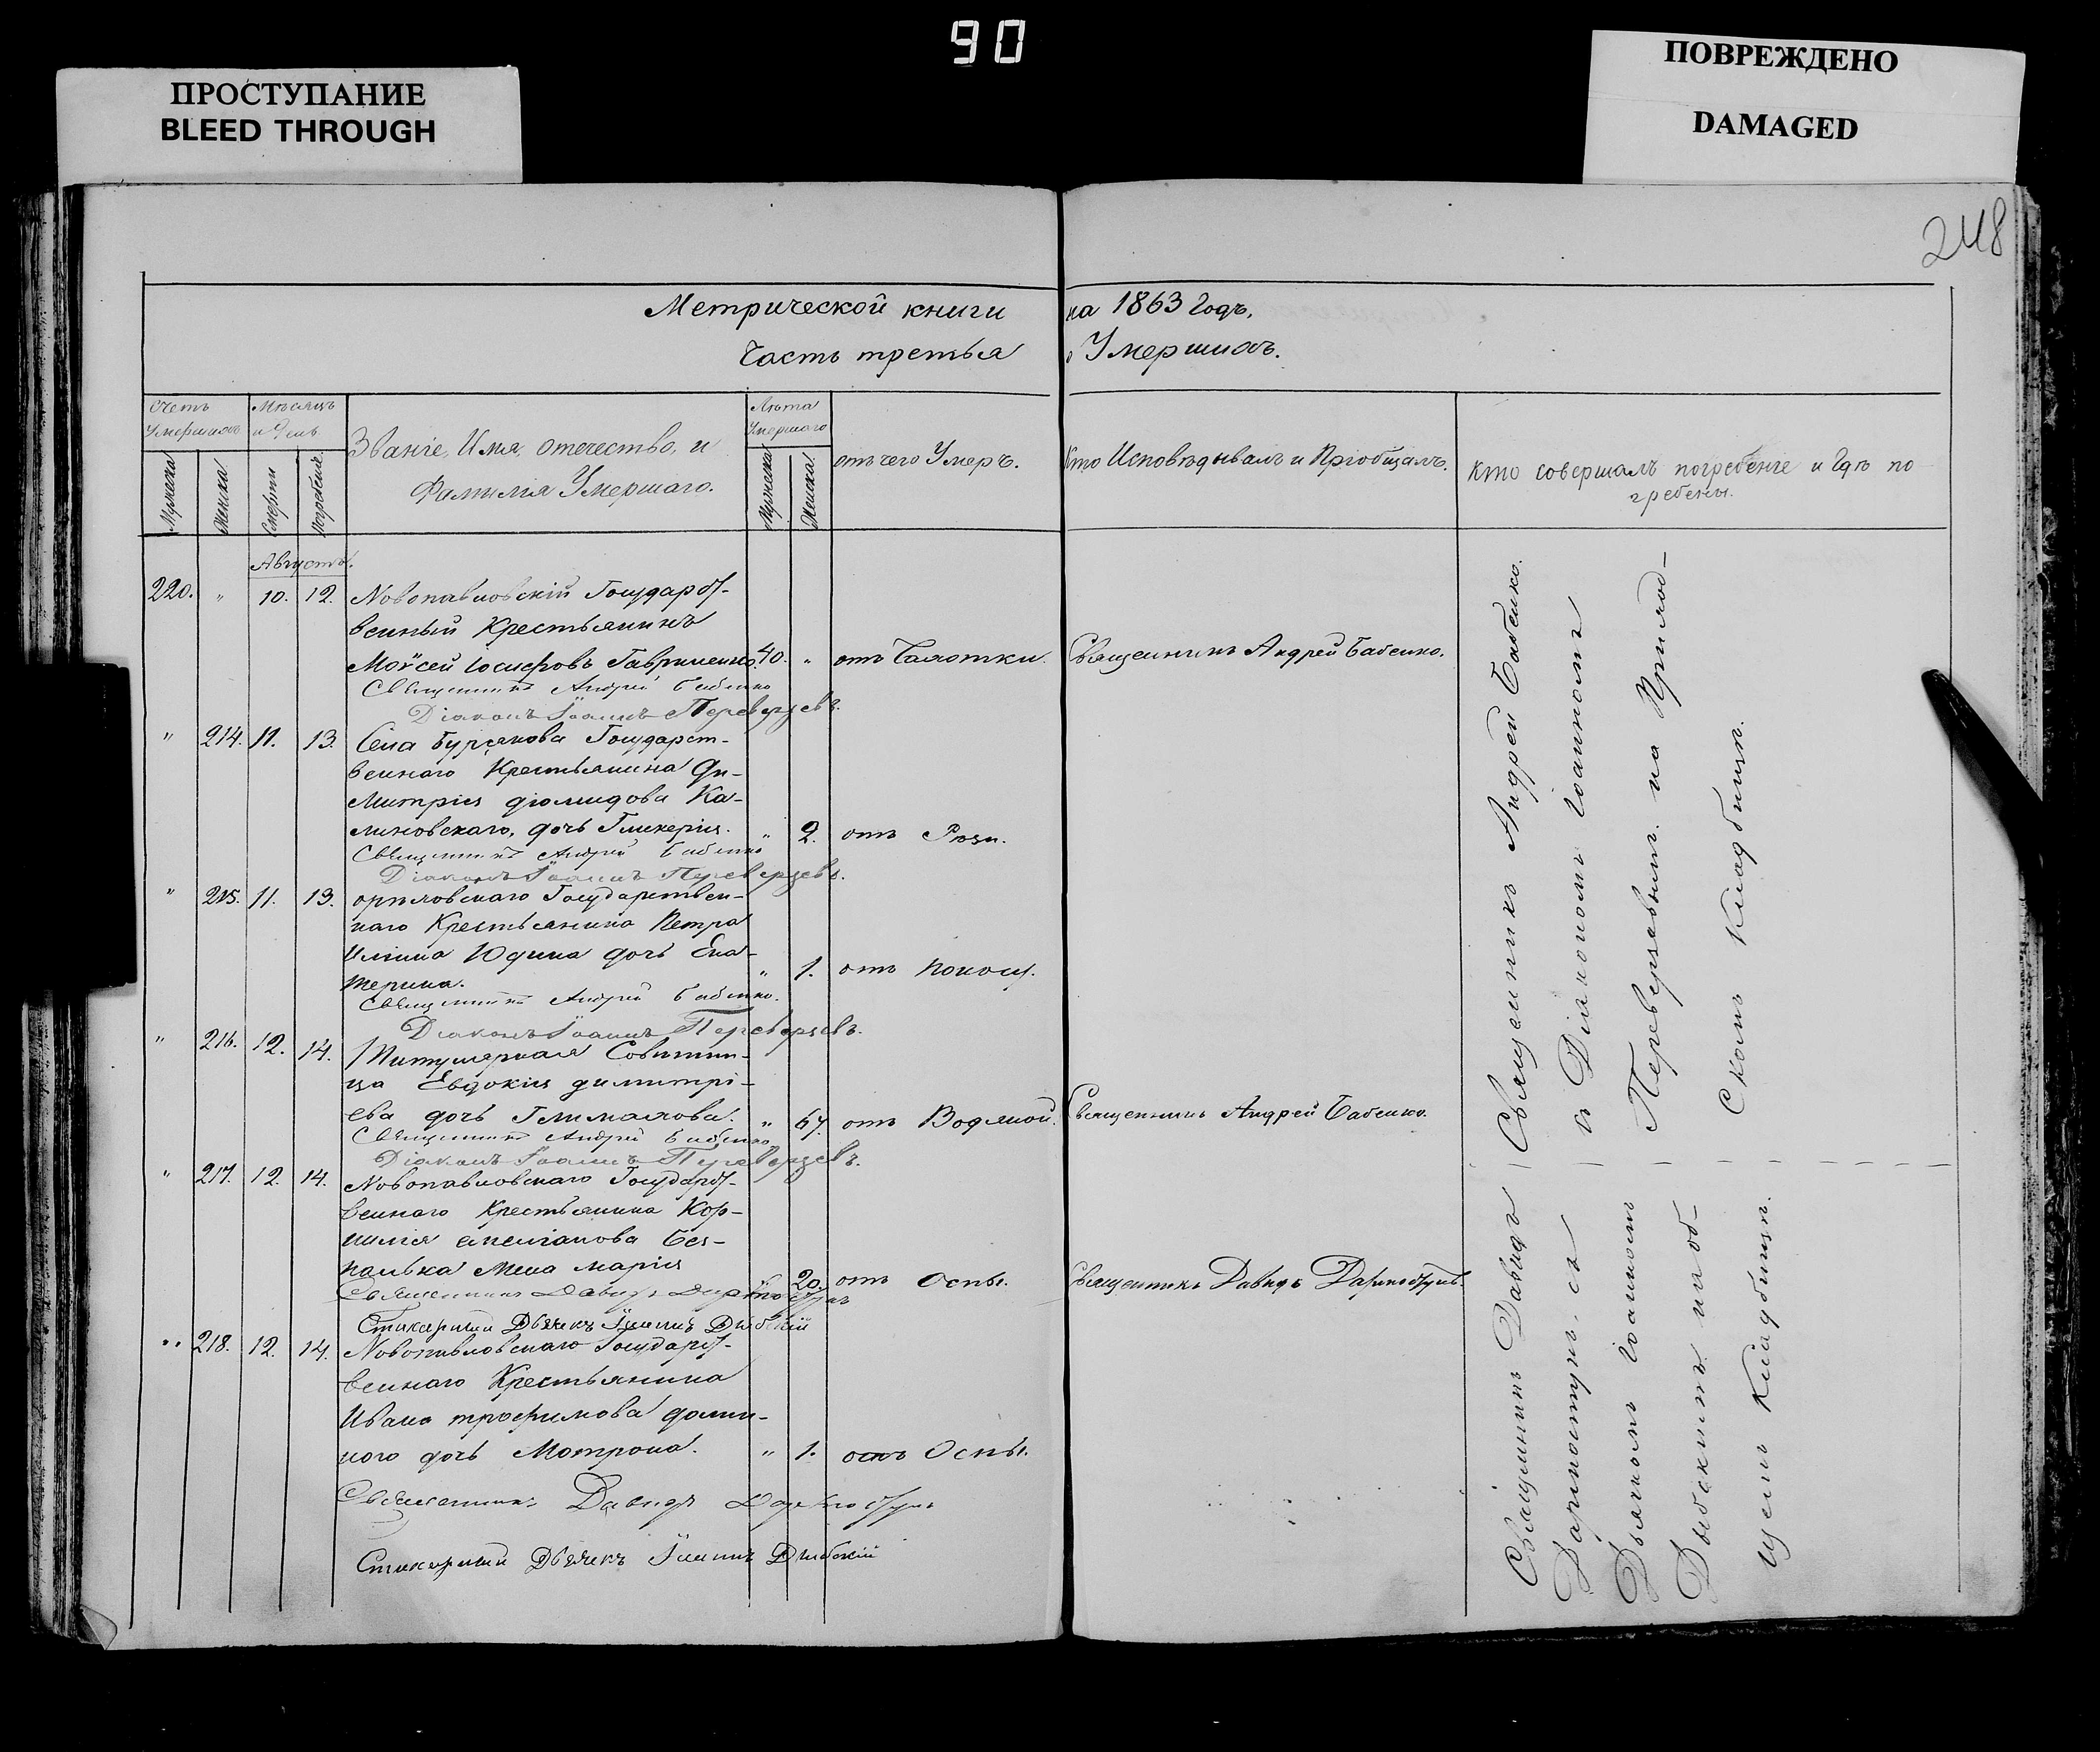 90
ПРОСТУПАНИЕ
BLEED THROUGH
ПОВРЕЖДЕНО
DAMAGED
248
Метрической книги на 1863 годъ,
Часть третья о Умершихъ.
Счетъ Умершихъ
Мѣсяцъ и день
Званіе, Имя, отечество, и Фамилія Умершаго.
Лѣта Умершаго
отъ чего Умеръ.
Кто Исповѣдывалъ и Пріобщалъ.
кто совершалъ погребеніе и гдѣ погребены.
Мужеска
Женска
Смерти
Погребенія
Мужеска
Женска
Августъ.
220. " 10. 12. Новопавловскій Государст-
венный Крестьянинъ
Моѵсей Іосифовъ Гавриленко 40. " отъ Чахотки. Священникъ Андрей Бабенко.
Священникъ Андрей Бабенко
Діаконъ Іоаннъ Переверзевъ.
" 214. 11. 13. Села Бурсякова Государст-
веннаго Крестьянина Ди-
митрія Діомидова Ка-
линовскаго, дочь Гликерія. " 2. отъ Рѣзи.
Священникъ Андрей Бабенко
Діаконъ Іоаннъ Переверзевъ.
" 215. 11. 13. орѣховскаго Государствен-
наго Крестьянина Петра
Ильина Юдина дочь Ека-
терина. " 1. отъ поносу.
Священникъ Андрей Бабенко.
Діаконъ Іоаннъ Переверзевъ.
" 216. 12. 14. Титулярная Совѣтни-
ца Евдокія димитрі-
ева дочь " 67. отъ Водяной. Священникъ Андрей Бабенко.
Священникъ Андрей Бабенко
Діаконъ Іоаннъ Переверзевъ.
" 217. 12. 14. Новопавловскаго Государст-
веннаго Крестьянина Кор-
нилія
жена марія 20. отъ Оспы. Священникъ Давидъ
Священникъ Давидъ
Стихарный Дьячекъ Іоаннъ
" 218. 12. 14. Новопавловскаго Государст-
веннаго Крестьянина
Ивана трофимова
дочь Мотрона. " 1. отъ Оспы.
Священникъ Давидъ
Стихарный Дьячекъ Іоаннъ
Священникъ Андрей Бабенко.
съ Діакономъ Іоанномъ
Переверзевымъ. на Приход-
скомъ Кладбищѣ.
Священникъ Давидъ
съ
Дьячкомъ Іоанномъ
на об-
щемъ Кладбищѣ.